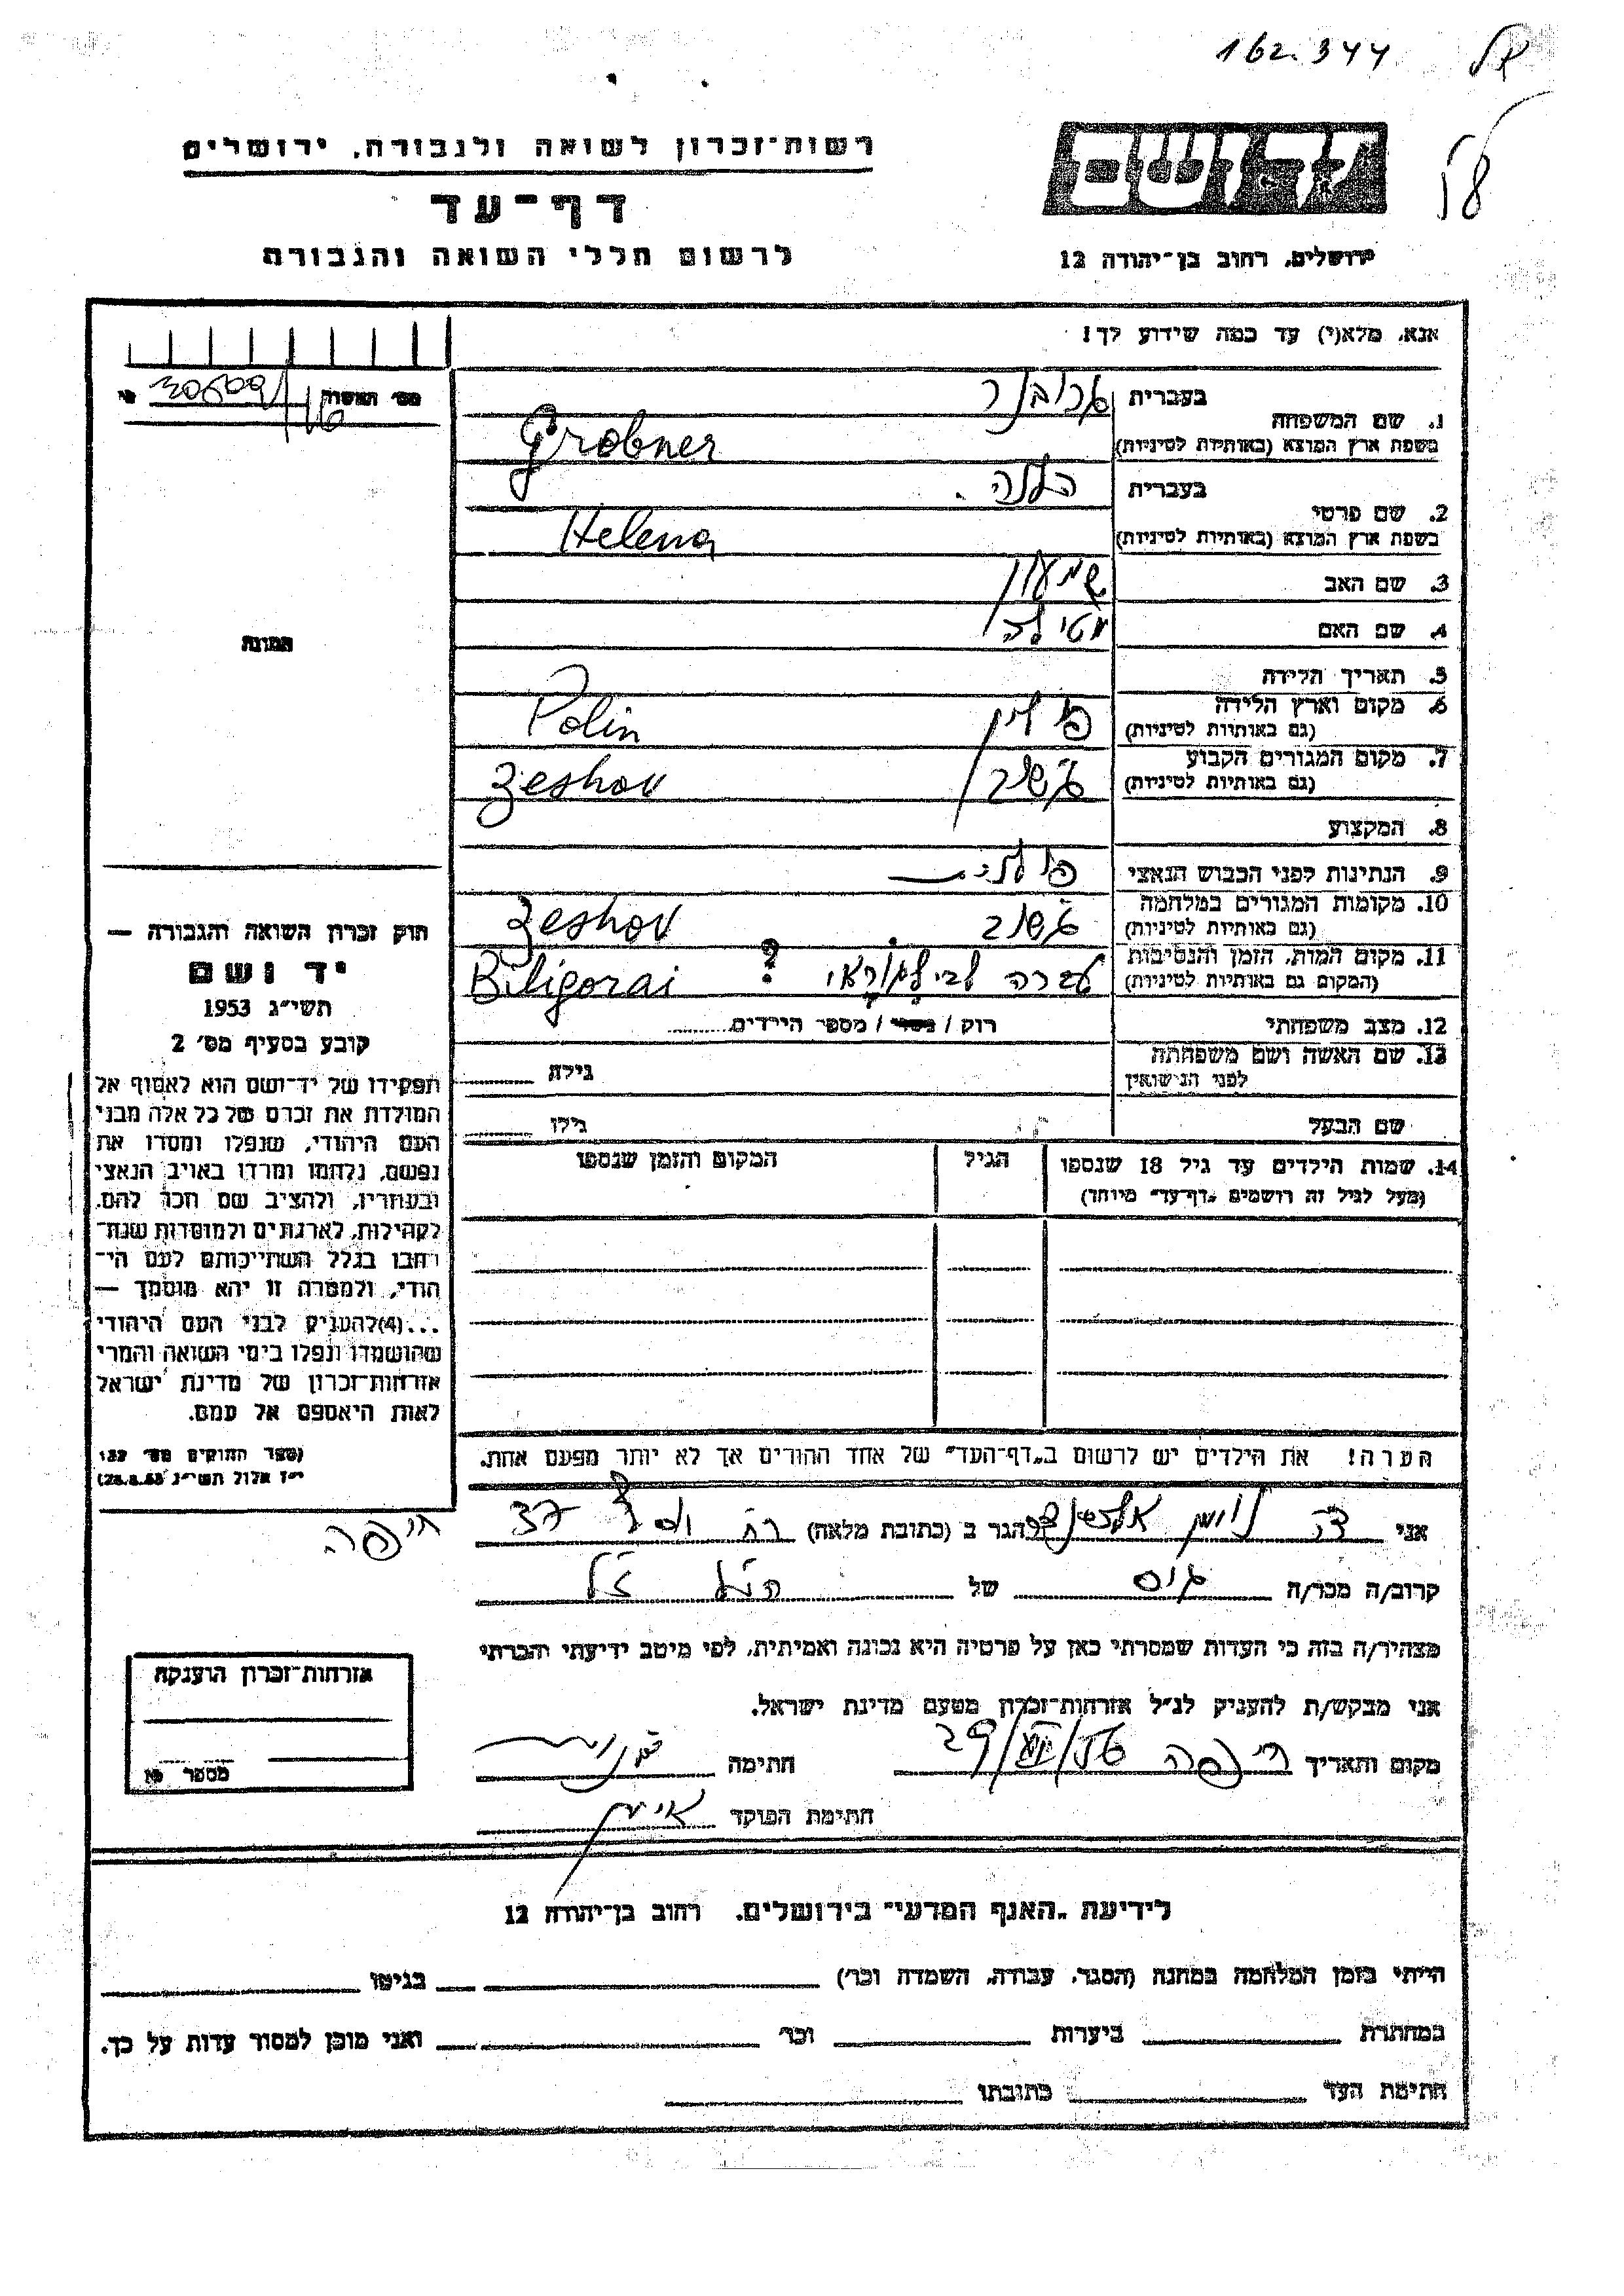 162.344
רשות־זכרון לשואה ולגבורה, ירושלים
דף־עד
לרשום חללי השואה והגבורה
ידושם
ירושלים, רחוב בן־יהודה 12
אנא, מלא(י) עד כמה שידוע לך!
מס׳ תאשרה
1. שם המשפחה
בעברית גרובנר
בשפת ארץ המוצא (באותיות לטיניות) Grobner
2. שם פרטי
בעברית הלנה.
בשפת ארץ המוצא (באותיות לטיניות) Helena
3. שם האב שמעון
4. שם האם מטילדה
5. תאריך הלידה
6. מקום וארץ הלידה פולין Polin
(גם באותיות לטיניות)
7. מקום המגורים הקבוע ז׳שוב Zeshov
(גם באותיות לטיניות)
8. המקצוע
9. הנתינות לפני הכבוש הנאצי פולנית
10. מקומות המגורים במלחמה ז׳שוב Zeshov
(גם באותיות לטיניות)
11. מקום המות, הזמן והנסיבות עברה לבילגוראי ? Biligorai
(המקום גם באותיות לטיניות)
12. מצב משפחתי רוק / נשוי / מספר הילדים
13. שם האשה ושם משפחתה
לפני הנישואין גילה
שם הבעל גילו
14. שמות הילדים עד גיל 18 שנספו הגיל המקום והזמן שנספו
(מעל לגיל זה רושמים „דף־עד״ מיוחד)
הערה! את הילדים יש לרשום ב„דף־העד״ של אחד ההורים אך לא יותר מפעם אחת.
תמונה
חוק זכרון השואה והגבורה —
יד ושם
תשי״ג 1953
קובע בסעיף מס׳ 2
תפקידו של יד־ושם הוא לאסוף אל
המולדת את זכרם של כל אלה מבני
העם היהודי, שנפלו ומסרו את
נפשם, נלחמו ומרדו באויב הנאצי
ובעוזריו, ולהציב שם וזכר להם,
לקהילות, לארגונים ולמוסדות שנח־
רבו בגלל השתייכותם לעם הי־
הודי, ולמטרה זו יהא מוסמך —
...(4)להעניק לבני העם היהודי
שהושמדו ונפלו בימי השואה והמרי
אזרחות־זכרון של מדינת ישראל
לאות היאספם אל עמם.
(ספר החוקים מס׳ 132,
י״ז אלול תשי״ג 28.8.53)
אני הגר ב (כתובת מלאה) רח 37
חיפה
קרוב/ה מכר/ה גיס של הנ״ל ז״ל
מצהיר/ה בזה כי העדות שמסרתי כאן על פרטיה היא נכונה ואמיתית, לפי מיטב ידיעתי והכרתי
אני מבקש/ת להעניק לנ״ל אזרחות־זכרון מטעם מדינת ישראל.
מקום ותאריך חיפה 29/ חתימה
חתימת הפוקד
אזרחות־זכרון הוענקה
מספר
לידיעת „האגף המדעי״ בירושלים, רחוב בן־יהודה 12
הייתי בזמן המלחמה במחנה (הסגר, עבודה, השמדה וכו׳) בגיטו
במחתרת ביערות וכו׳ ואני מוכן למסור עדות על כך.
חתימת העד כתובתו